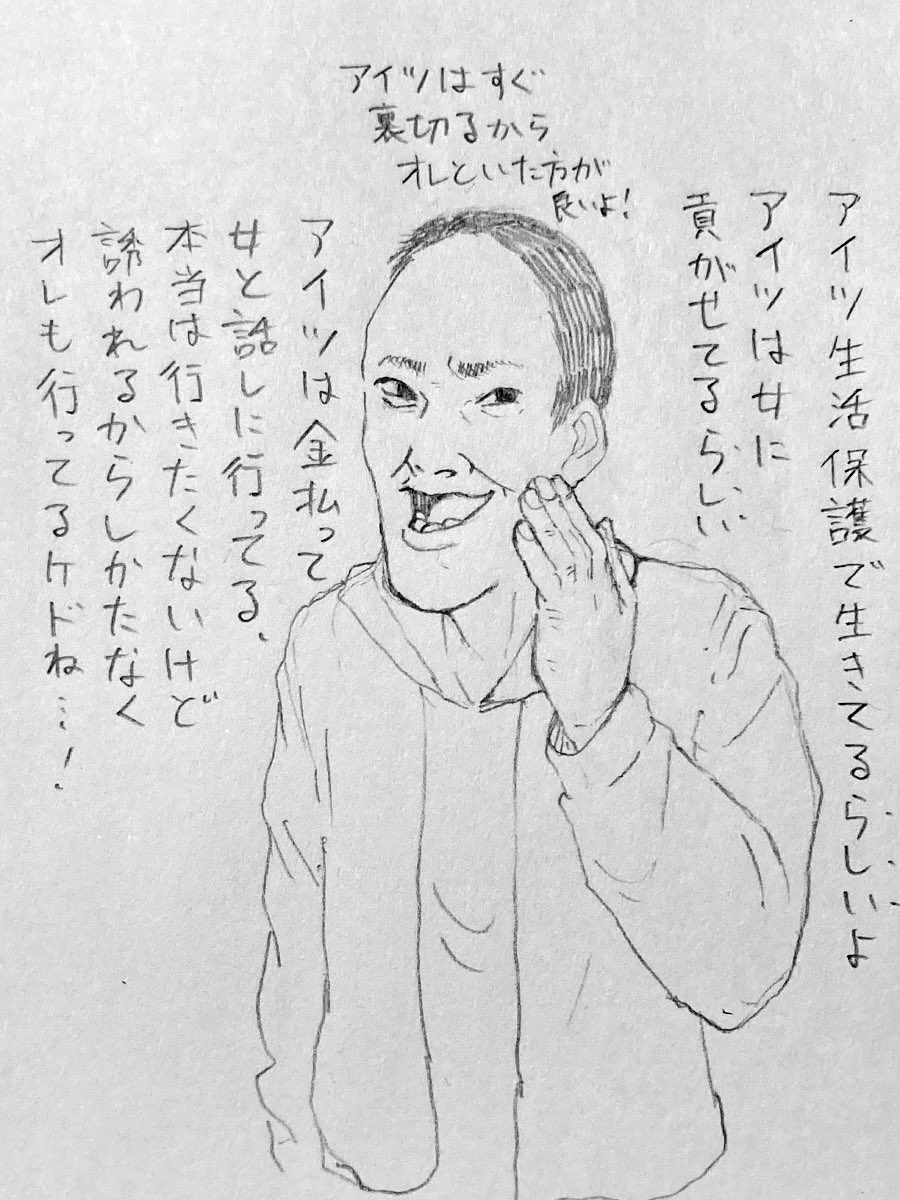 アイツはすぐ
裏切るから
オレといた方が
良いよ!
アイツ生活保護で生きてるらしいよ
アイツは女に
貢がせてるらしい
アイツは金払って
女と話しに行ってる、
本当は行きたくないけど
誘われるからしかたなく
オレも行ってるケドね…!